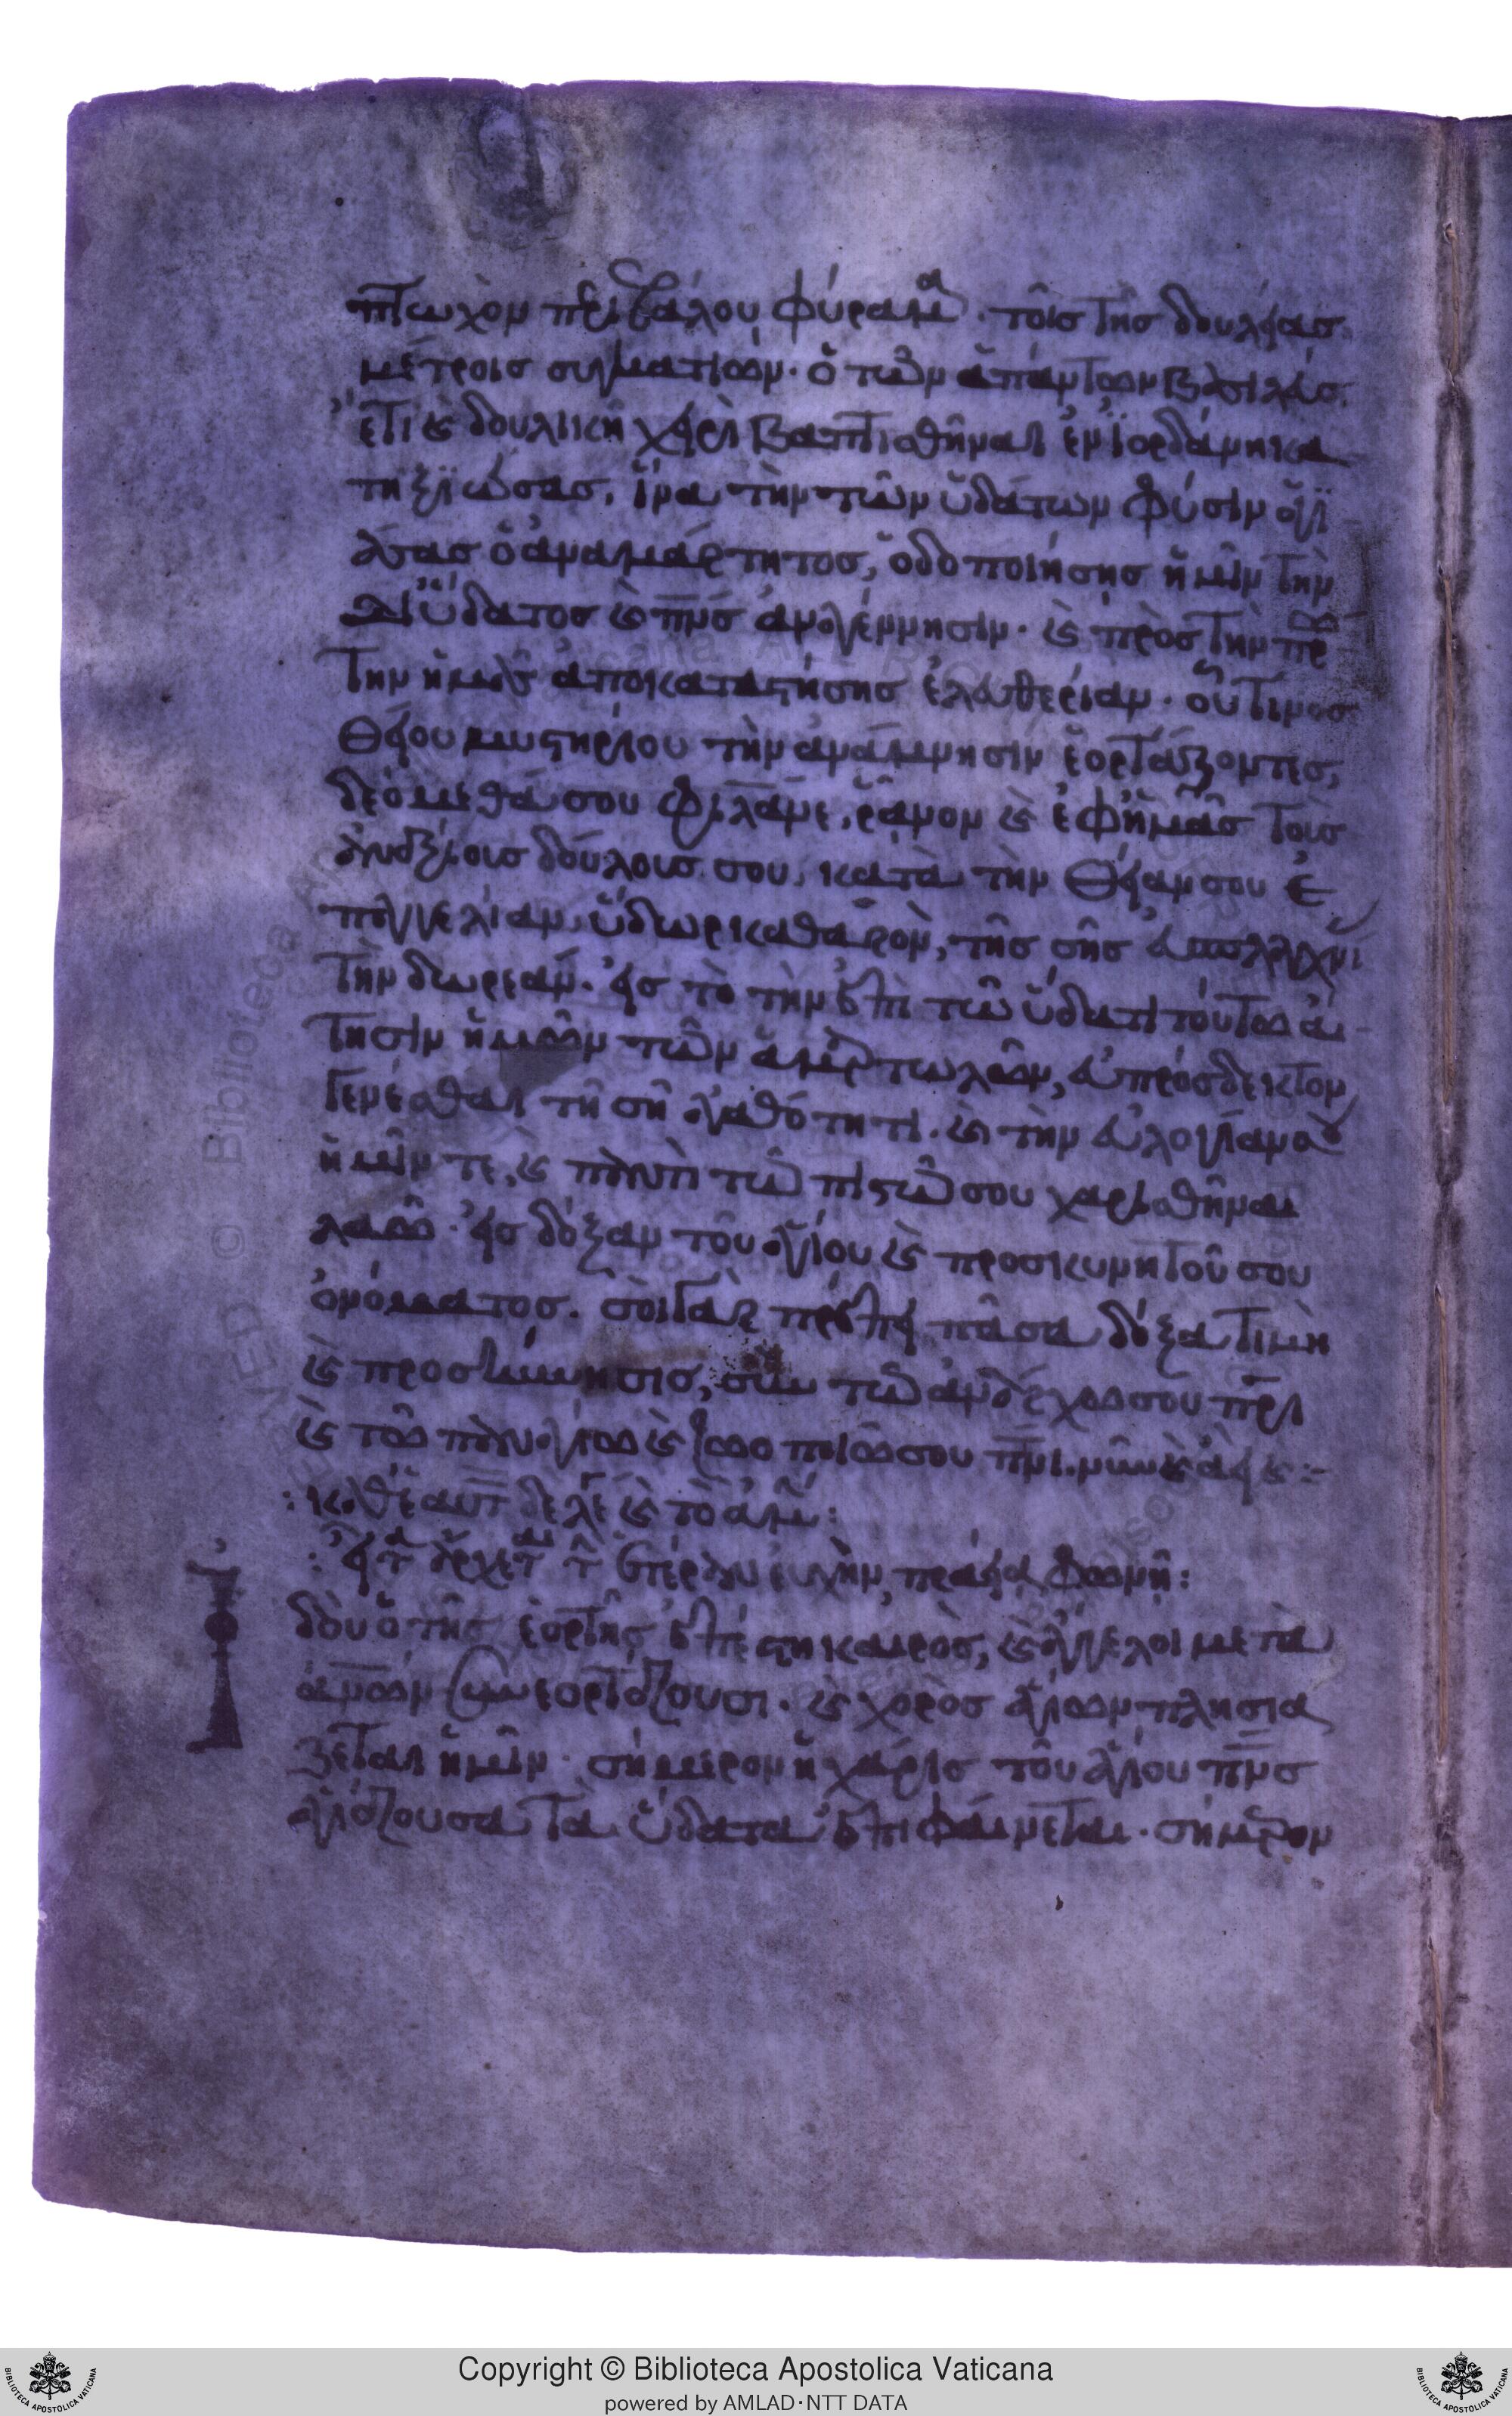 πτωχὸν περιεβάλου φύραμα. τοῖς τῆς δουλείας
μέτροις συγκατιὼν. ὁ τῶν ἁπάντων βασιλεύς.
ἔτι καὶ δουλικῇ χειρὶ βαπτισθῆναι ἐν ϊορδάνη κα
τηξϊώσας, ἵνα τὴν τῶν ὑδάτων φύσιν ἁγϊ
άσας ὁ ἀναμάρτητος, ὁδοποιήσῃς ἡμῖν τὴν
δι ὕδατος καὶ πνς ἀναγέννησιν. καὶ πρὸς τὴν πρώ
την ἡμᾶς ἀποκαταστήσῃς ἐλευθερίαν. οὗτινος
θείου μυστηρίου τὴν ἀνάμνησιν ἑορτάζοντες,
δεόμεθά σου φιλάνε, ῥᾶνον καὶ ἐφ ἡμᾶς τοὺς
ἀναξίους δούλους σου, κατὰ τὴν θείαν σου ἐ
παγγελίαν, ὕδωρ καθαρὸν, τῆς σῆς εὐσπλαγχνί
τὴν δωρεάν. εἰς τὸ τὴν ἐπὶ τῶ ὕδατι τούτω αἴ
τησιν ἡμῶν τῶν ἁμαρτωλῶν, εὐπρόσδεκτον
γενέσθαι τῇ σῇ ἀγαθότητι. καὶ τὴν εὐλογίαν σου
ἡμῖν τε, καὶ παντὶ τῶ πιστῶ σου χαρισθῆναι
λαῶ. εἰς δόξαν τοῦ ἁγίου καὶ προσκυνητοῦ σου
ὀνόματος. σοὶ γὰρ πρέπει πᾶσα δόξα τιμὴ
καὶ προσκύνησις, σὺν τῶ ἀνάρχω σου πρι
καὶ τῶ παναγίω καὶ ζωοποιῶ σου πνι. νῦν καὶ ἀεὶ καὶ :-
καὶ τὸ ἀμήν:
εὐχὴν, πράεία φωνῇ:
Ιδοὺ ὁ τῆς ἑορτῆς ἐπέστη καιρὸς, καὶ ἄγγελοι μετὰ
ἀνων συνεορτάζουσι. καὶ χορὸς ἁγίων πλησιά
ζεται ἡμῖν. σήμερον ἡ χάρις τοῦ ἁγίου πνς
ἁγιάζουσα τὰ ὕδατα ἐπιφαίνεται. σήμερον
Copyright © Biblioteca Apostolica Vaticana
powered by AMLAD·NTT DATA